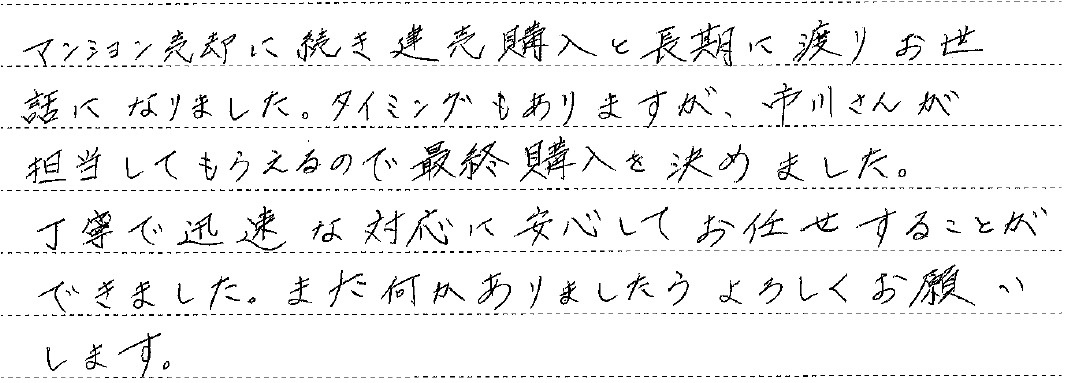 マンション売却に続き建売購入と長期に渡りお世
話になりました。タイミングもありますが、市川さんが
担当してもらえるので最終購入を決めました。
丁寧で迅速な対応に安心してお任せすることが
できました。また何かありましたらよろしくお願い
します。